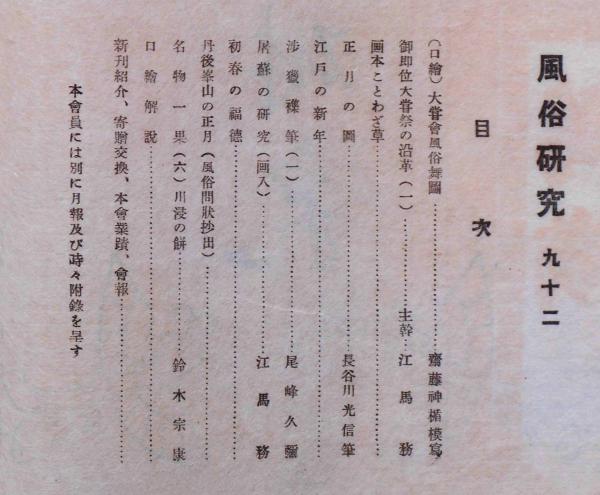 風俗研究 九十二
目次
(口繪)大嘗會風俗舞圖…………………齋藤神楯模寫
御即位大嘗祭の沿革(一)…………主幹 江馬務
画本ことわざ草……………………
正月の圖……………………長谷川光信筆
江戸の新年……………………
渉獵襍筆(一)……………………尾崎久彌
屠蘇の研究(画入)……………………江馬務
初春の福德……………………
丹後峯山の正月(風俗問狀抄出)……………………
名物一果(六)川浸の餅……………鈴木宗康
口繪解說……………………
新刊紹介、寄贈交換、本會業蹟、會報……………………
本會員には別に月報及び時々附錄を呈す